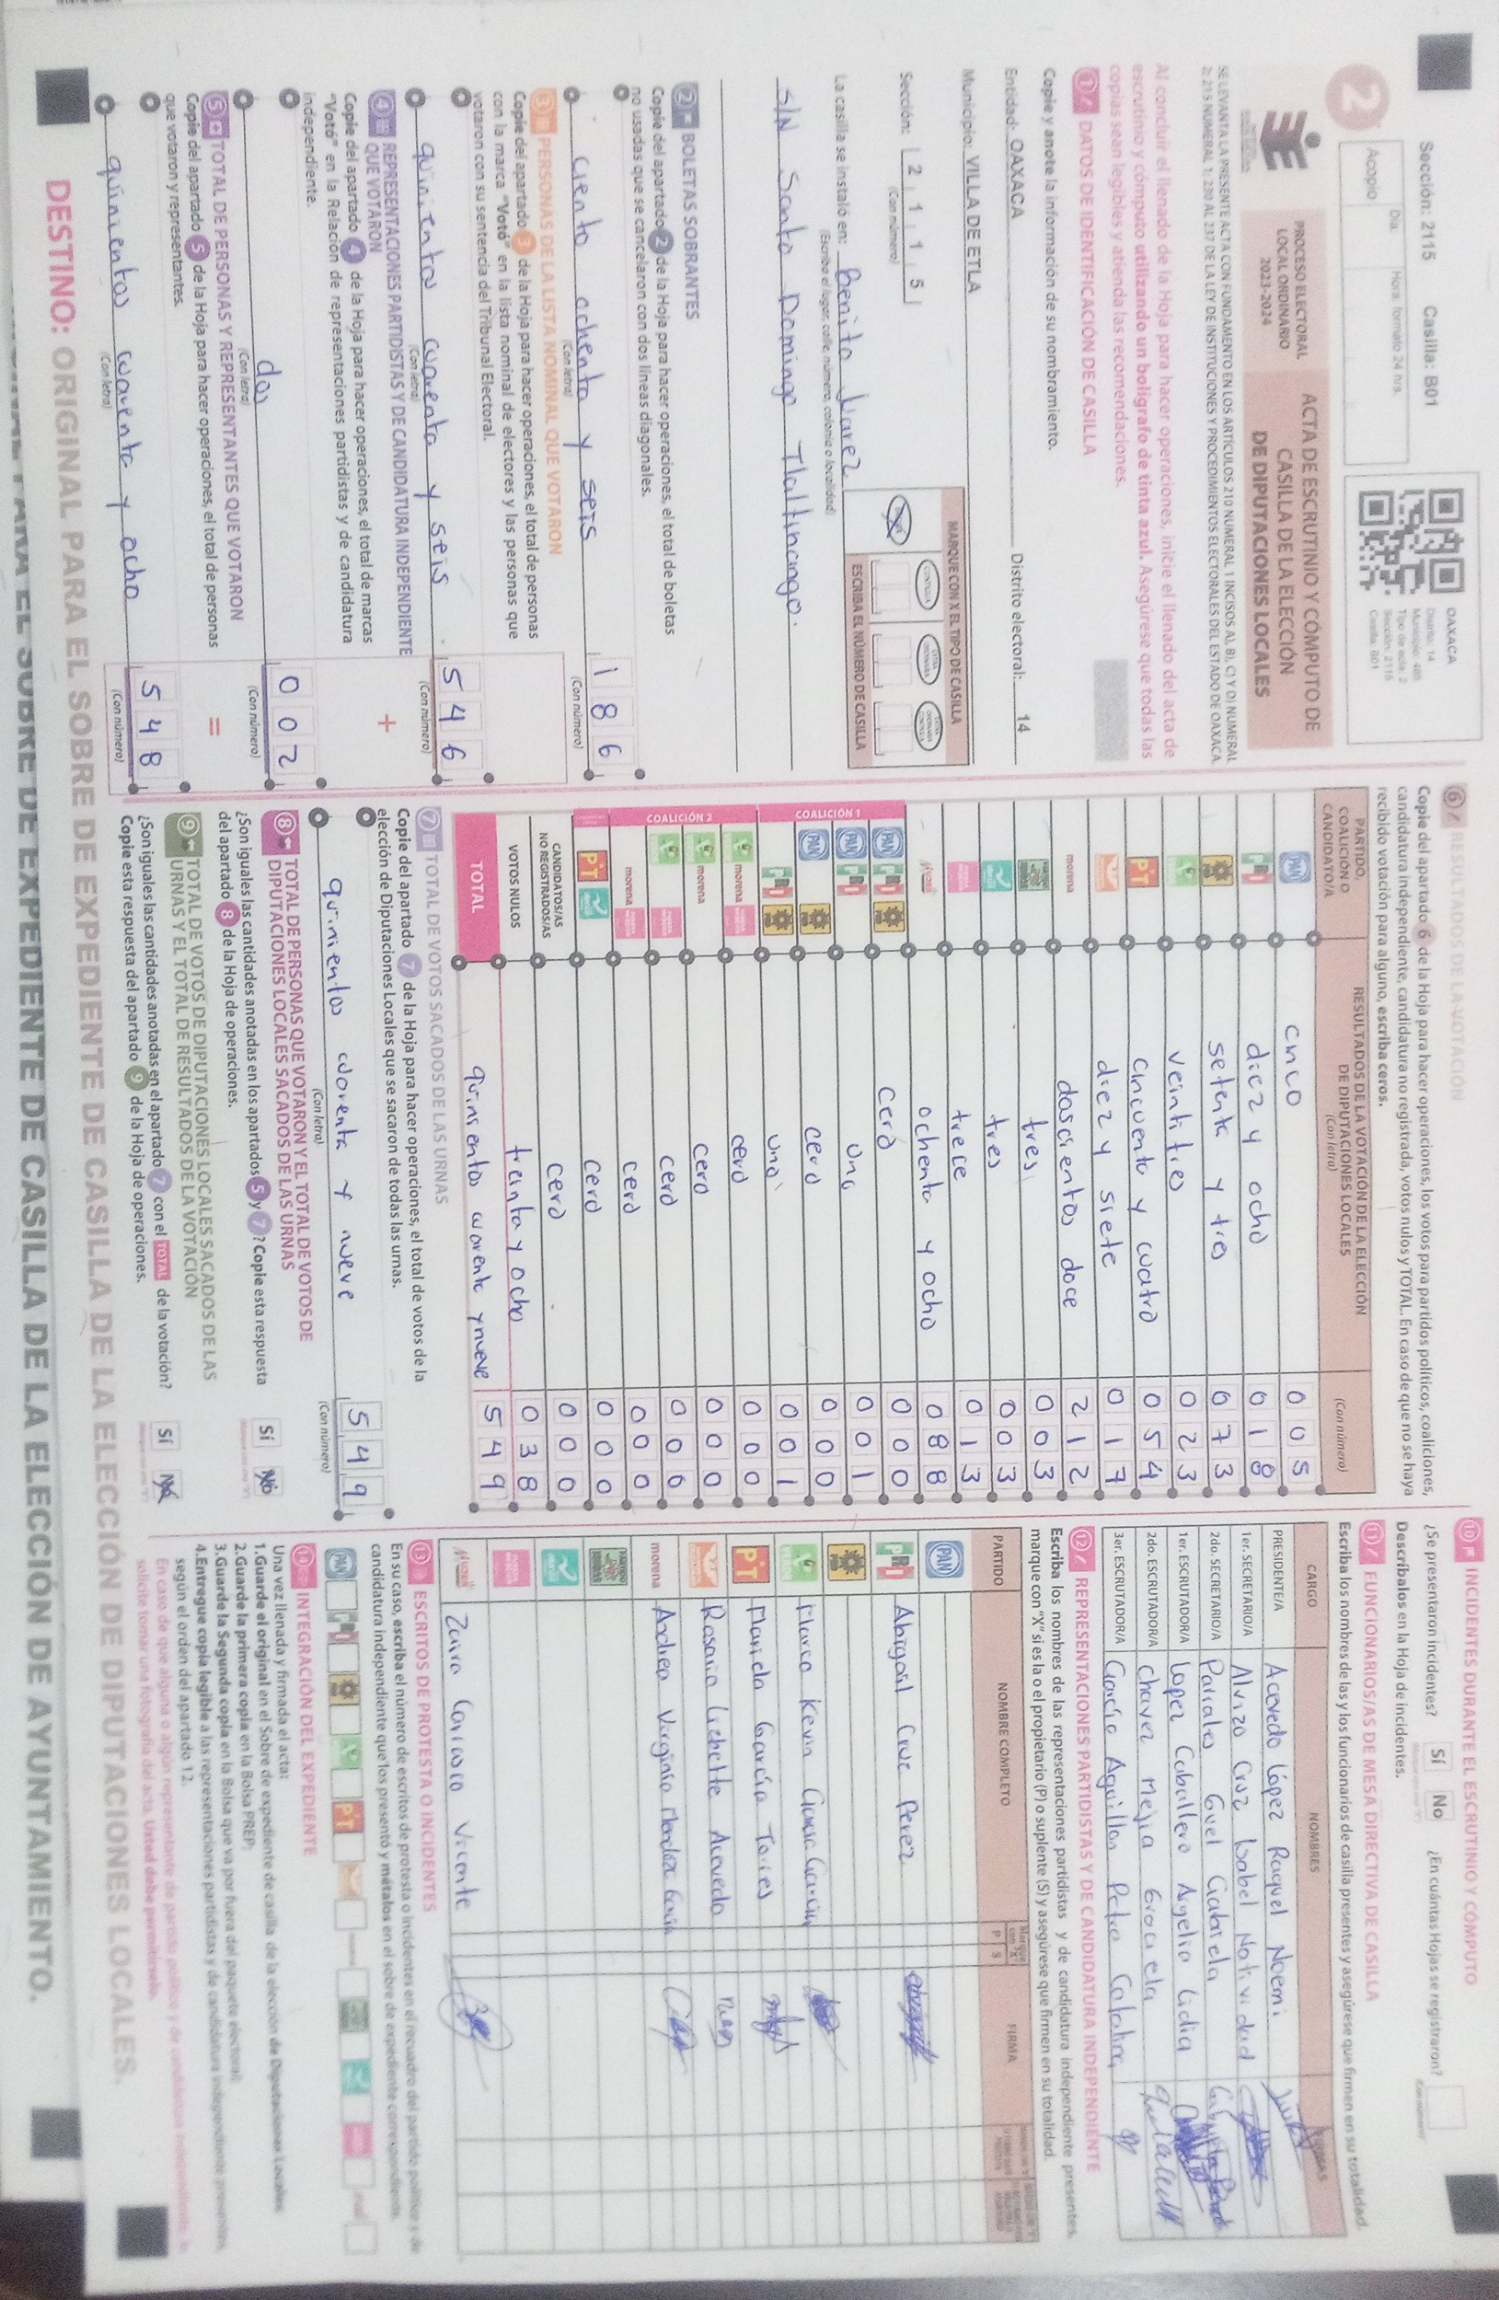 Sección: 2115 Casilla: B01
Día: Hora: formato 24 hrs.
Acopio
OAXACA
Distrito: 14
Tipo de acta: 2
Sección: 2115
Casilla: B01
2
PROCESO ELECTORAL
LOCAL ORDINARIO
2023-2024
ACTA DE ESCRUTINIO Y CÓMPUTO DE
CASILLA DE LA ELECCIÓN
DE DIPUTACIONES LOCALES
SE LEVANTA LA PRESENTE ACTA CON FUNDAMENTO EN LOS ARTÍCULOS 210 NUMERAL 1 INCISOS A), B), C) Y D) NUMERAL
2; 215 NUMERAL 1; 230 AL 237 DE LA LEY DE INSTITUCIONES Y PROCEDIMIENTOS ELECTORALES DEL ESTADO DE OAXACA.
Al concluir el llenado de la Hoja para hacer operaciones, inicie el llenado del acta de
escrutinio y cómputo utilizando un bolígrafo de tinta azul. Asegúrese que todas las
copias sean legibles y atienda las recomendaciones.
1 DATOS DE IDENTIFICACIÓN DE CASILLA
Copie y anote la información de su nombramiento.
Entidad: OAXACA Distrito electoral: 14
Municipio: VILLA DE ETLA
Sección: 2 1 1 5
(Con número)
MARQUE CON X EL TIPO DE CASILLA
ESCRIBA EL NÚMERO DE CASILLA
La casilla se instaló en: Benito Juarez
(Escriba el lugar, calle, número, colonia o localidad)
S/N Santo Domingo Tlaltinango.
2 BOLETAS SOBRANTES
Copie del apartado 2 de la Hoja para hacer operaciones, el total de boletas
no usadas que se cancelaron con dos líneas diagonales.
ciento ochenta y seis 1 8 6
(Con letra) (Con número)
3 PERSONAS DE LA LISTA NOMINAL QUE VOTARON
Copie del apartado 3 de la Hoja para hacer operaciones, el total de personas
con la marca "Votó" en la lista nominal de electores y las personas que
votaron con su sentencia del Tribunal Electoral.
quinientos cuarenta y seis 5 4 6
(Con letra) (Con número)
4 REPRESENTACIONES PARTIDISTAS Y DE CANDIDATURA INDEPENDIENTE
QUE VOTARON
+
Copie del apartado 4 de la Hoja para hacer operaciones, el total de marcas
"Votó" en la Relación de representaciones partidistas y de candidatura
independiente.
dos 0 0 2
(Con letra) (Con número)
5 TOTAL DE PERSONAS Y REPRESENTANTES QUE VOTARON
=
Copie del apartado 5 de la Hoja para hacer operaciones, el total de personas
que votaron y representantes.
quinientos cuarenta y ocho 5 4 8
(Con letra) (Con número)
6 RESULTADOS DE LA VOTACIÓN
Copie del apartado 6 de la Hoja para hacer operaciones, los votos para partidos políticos, coaliciones,
candidatura independiente, candidatura no registrada, votos nulos y TOTAL. En caso de que no se haya
recibido votación para alguno, escriba ceros.
PARTIDO,
COALICIÓN O
CANDIDATO/A
RESULTADOS DE LA VOTACIÓN DE LA ELECCIÓN
DE DIPUTACIONES LOCALES
(Con letra) (Con número)
PAN cinco 0 0 5
PRI diez y ocho 0 1 8
PRD setenta y tres 0 7 3
veintitres 0 2 3
PT cincuenta y cuatro 0 5 4
diez y siete 0 1 7
morena doscientos doce 2 1 2
tres 0 0 3
tres 0 0 3
trece 0 1 3
ochenta y ocho 0 8 8
COALICIÓN 1
PAN PRI PRD cero 0 0 0
PAN PRI uno 0 0 1
PAN PRD cero 0 0 0
PRI PRD uno 0 0 1
COALICIÓN 2
morena cero 0 0 0
morena cero 0 0 0
cero 0 0 0
morena cero 0 0 0
PT cero 0 0 0
CANDIDATOS/AS
NO REGISTRADOS/AS cero 0 0 0
VOTOS NULOS treinta y ocho 0 3 8
TOTAL quinientos cuarenta y nueve 5 4 9
7 TOTAL DE VOTOS SACADOS DE LAS URNAS
Copie del apartado 7 de la Hoja para hacer operaciones, el total de votos de la
elección de Diputaciones Locales que se sacaron de todas las urnas.
quinientos cuarenta y nueve 5 4 9
(Con letra) (Con número)
8 TOTAL DE PERSONAS QUE VOTARON Y EL TOTAL DE VOTOS DE
DIPUTACIONES LOCALES SACADOS DE LAS URNAS
¿Son iguales las cantidades anotadas en los apartados 5 y 7? Copie esta respuesta
del apartado 8 de la Hoja de operaciones. Sí No
9 TOTAL DE VOTOS DE DIPUTACIONES LOCALES SACADOS DE LAS
URNAS Y EL TOTAL DE RESULTADOS DE LA VOTACIÓN
¿Son iguales las cantidades anotadas en el apartado 7 con el TOTAL de la votación?
Copie esta respuesta del apartado 9 de la Hoja de operaciones. Sí No
10 INCIDENTES DURANTE EL ESCRUTINIO Y CÓMPUTO
¿Se presentaron incidentes? Sí No ¿En cuántas Hojas se registraron?
Descríbalos en la Hoja de incidentes.
11 FUNCIONARIOS/AS DE MESA DIRECTIVA DE CASILLA
Escriba los nombres de las y los funcionarios de casilla presentes y asegúrese que firmen en su totalidad.
CARGO NOMBRES FIRMAS
PRESIDENTE/A Acevedo López Raquel Noemi
1er. SECRETARIO/A Alvizo Cruz Isabel Natividad
2do. SECRETARIO/A Parrales Guel Gabriela
1er. ESCRUTADOR/A Lopez Caballero Argelia Lidia
2do. ESCRUTADOR/A Chavez Mejia Graciela
3er. ESCRUTADOR/A Garcia Aguillon Petra Catalina
12 REPRESENTACIONES PARTIDISTAS Y DE CANDIDATURA INDEPENDIENTE
Escriba los nombres de las representaciones partidistas y de candidatura independiente presentes,
marque con "X" si es la o el propietario (P) o suplente (S) y asegúrese que firmen en su totalidad.
PARTIDO NOMBRE COMPLETO P S FIRMA
PAN
PRI Abigail Cruz Perez
PRD
Marco Kevin
PT Mariela García Torres
Rosario Lichette Acevedo
morena Andrea Virginia
Zaira Carrasco Vicente
13 ESCRITOS DE PROTESTA O INCIDENTES
En su caso, escriba el número de escritos de protesta o incidentes en el recuadro del partido político y de
candidatura independiente que los presentó y métalos en el sobre de expediente correspondiente.
PAN PRI PRD PT
14 INTEGRACIÓN DEL EXPEDIENTE
Una vez llenada y firmada el acta:
1.Guarde el original en el Sobre de expediente de casilla de la elección de Diputaciones Locales.
2.Guarde la primera copia en la Bolsa PREP.
3.Guarde la Segunda copia en la Bolsa que va por fuera del paquete electoral.
4.Entregue copia legible a las representaciones partidistas y de candidatura independiente presentes,
según el orden del apartado 12.
En caso de que alguna o algún representante de partido político y de candidatura independiente, le
solicite tomar una fotografía del acta, Usted debe permitírselo.
DESTINO: ORIGINAL PARA EL SOBRE DE EXPEDIENTE DE CASILLA DE LA ELECCIÓN DE DIPUTACIONES LOCALES.
PARA EL SOBRE DE EXPEDIENTE DE CASILLA DE LA ELECCIÓN DE AYUNTAMIENTO.